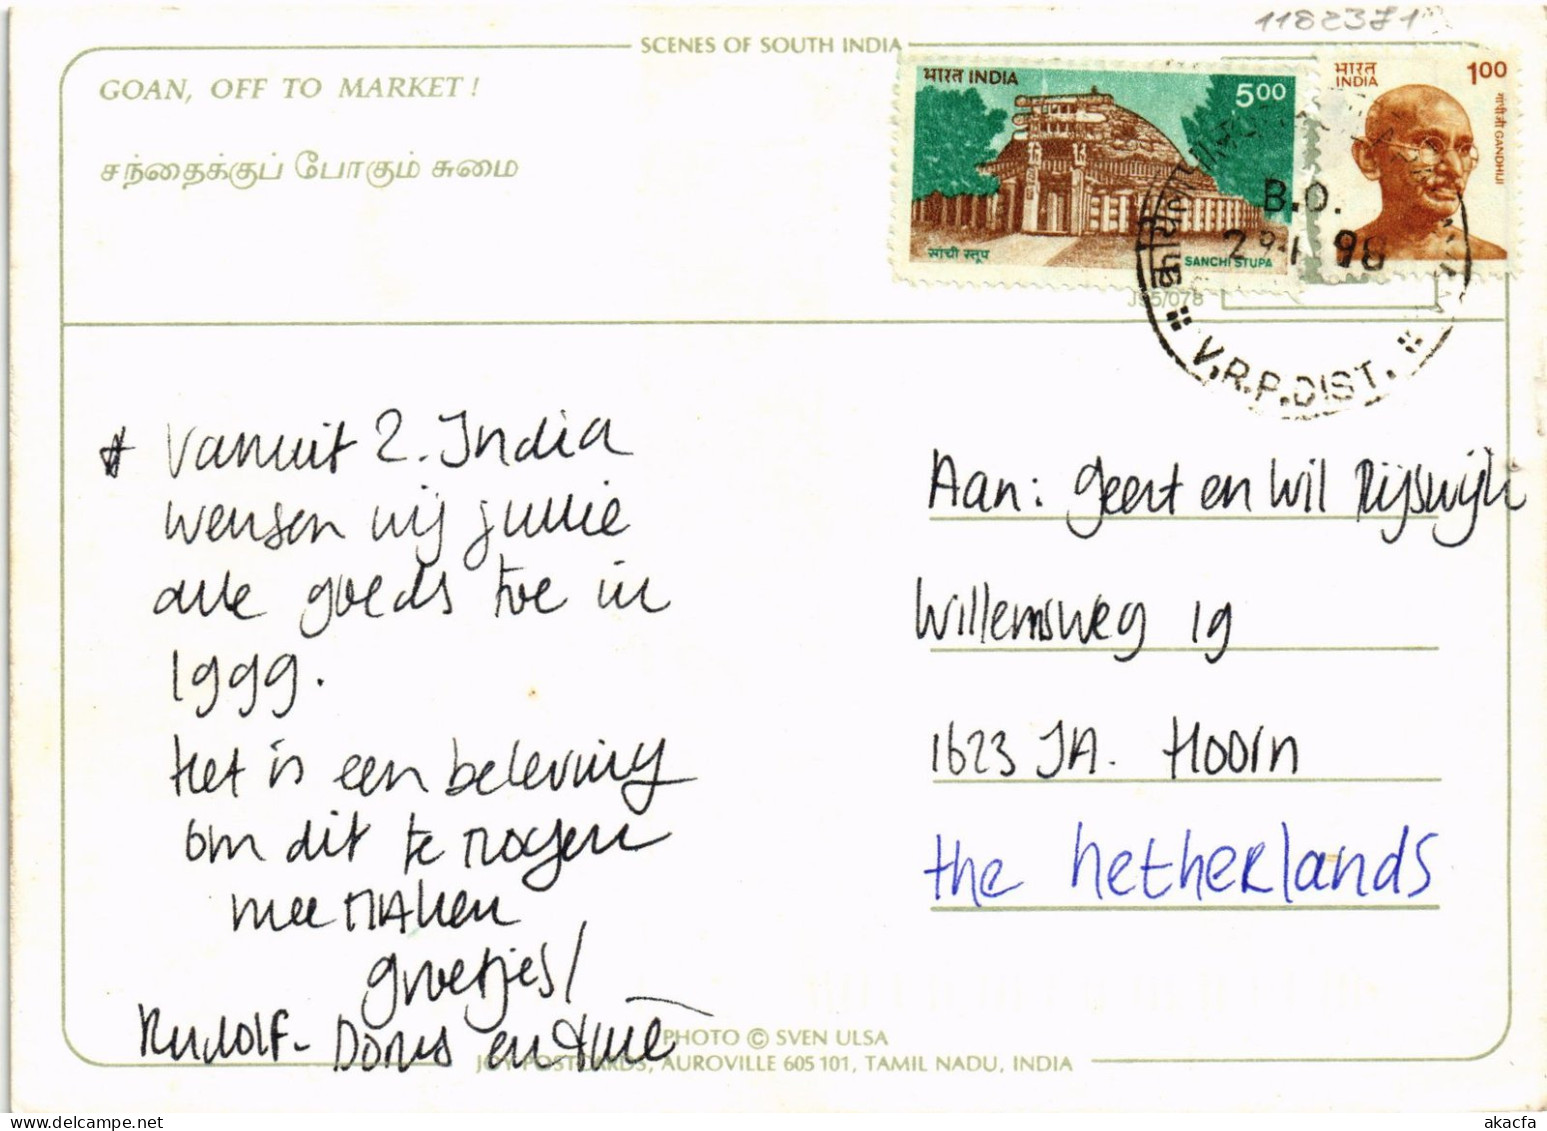 1182371
SCENES OF SOUTH INDIA
GOAN, OFF TO MARKET !
சந்தைக்குப் போகும் சுமை
भारत INDIA
500
सांची स्तूप
SANCHI STUPA
भारत
INDIA
100
गांधी जी GANDHIJI
B.O.
V.R.P.DIST.
J95/078
Vanuit Z. India
wensen wij jullie
alle goeds toe in
1999.
Het is een beleving
om dit te mogen
mee maken
groetjes/
Rudolf - Doris en
Aan: Geert en Wil Rijswijk
Willemsweg 19
1623 JA. Hoorn
the netherlands
PHOTO © SVEN ULSA
JOY POSTCARDS, AUROVILLE 605 101, TAMIL NADU, INDIA
akacfa